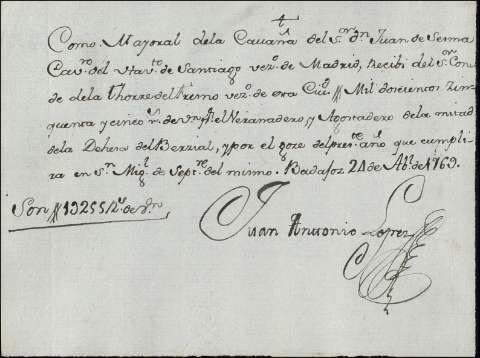 †
Como Mayoral dela Cavaña del Sor Dn Juan de Senna
Cavro del Havto de Santiago vezo de Madrid, Recibi del Sor Con
de dela Thorre del Fresno vezo de esta Ciud // Mil doscientos zin
quenta y cinco rs de vn pr el Veranadero, y Agostadero dela mitad
dela Dehesa del Berzial, y por el goze del preste año que cumpli
ra en Sn Migl de Septre del mismo. Badajoz 24 de Abl de 1769.
Son // 1U255 rs de vn
Juan Antonio Lopez